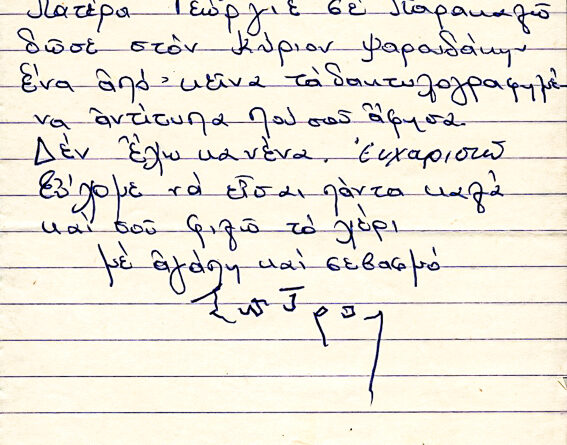 Πάτερα Γεώργιε σὲ παρακαλῶ
δῶσε στὸν Κύριον Ψαρουδάκην
ἕνα ἀπὸ κεῖνα τὰ δακτυλογραφημέ-
να ἀντίτυπα ποὺ σοῦ ἄφησα.
Δὲν ἔχω κανένα. Εὐχαριστῶ
Εὔχομε νὰ εἶσαι πάντα καλὰ
καὶ σοῦ φιλῶ τὸ χέρι
μὲ ἀγάπη καὶ σεβασμό